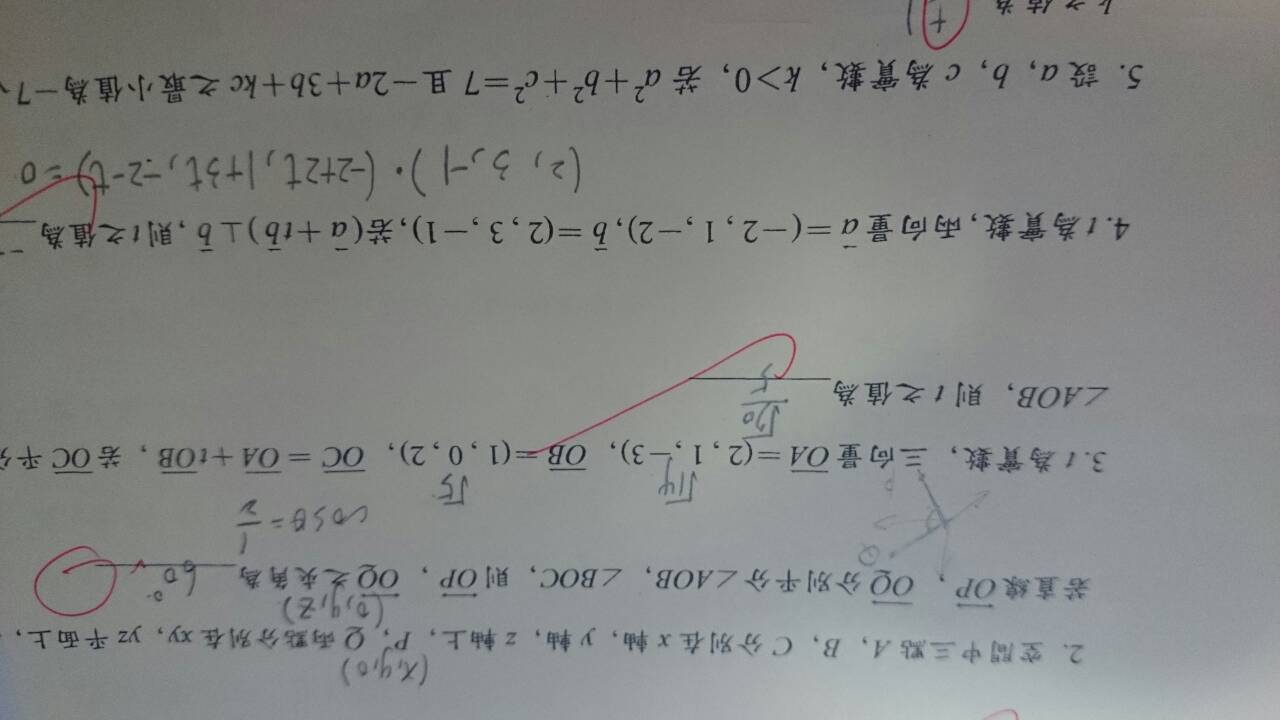 (x,y,0)
2. 空間中三點A, B, C 分別在x軸, y軸, z軸上, P, Q兩點分別在xy, yz平面上,
(0,y,z)
若直線OP, OQ 分別平分∠AOB, ∠BOC, 則OP, OQ之夾角為 60°
cosθ = 1/2
√14 √5
3. t為實數, 三向量OA=(2, 1, -3), OB=(1, 0, 2), OC=OA+tOB, 若OC平分
∠AOB, 則t之值為 √70/5
4. t為實數, 兩向量a=(-2, 1, -2), b=(2, 3, -1), 若(a+tb)⊥b, 則t之值為
(2, 3, -1)·(-2+2t, 1+3t, -2-t)=0
5. 設a, b, c為實數, k>0, 若a²+b²+c²=7且-2a+3b+kc之最小值為-7,
k之值為